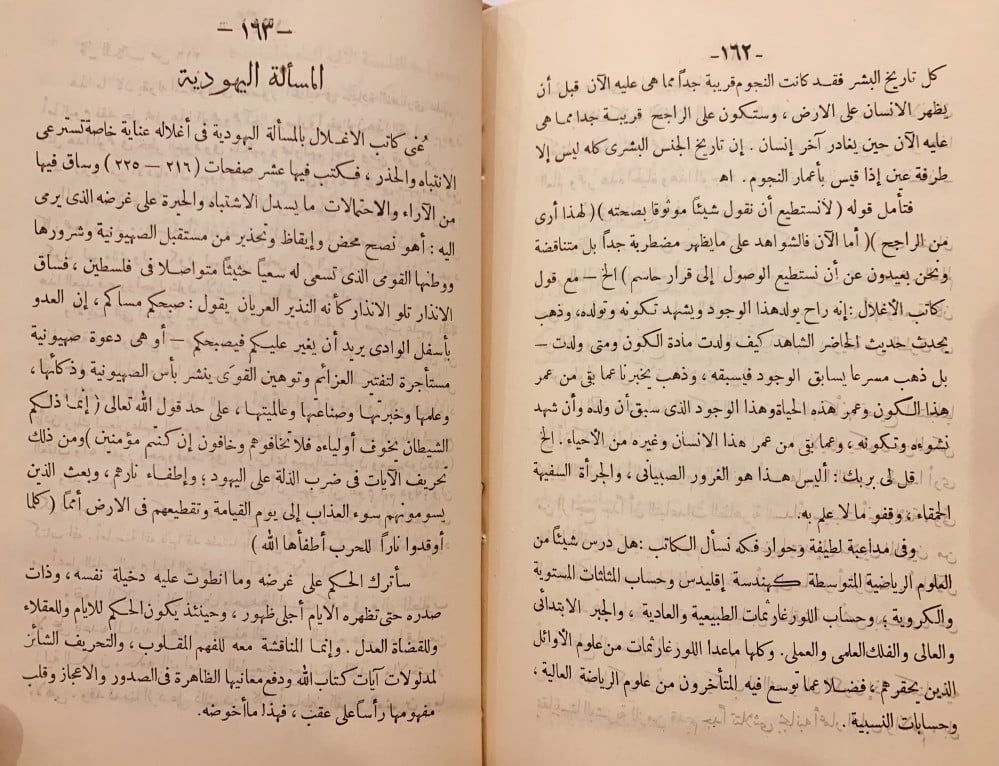 -١٦٢-
كل تاريخ البشر فقد كانت النجوم قريبة جداً مما هى عليه الآن قبل أن
يظهر الانسان على الارض، وستكون على الراجح قريبة جدا مما هى
عليه الآن حين يغادر آخر إنسان. إن تاريخ الجنس البشرى كله ليس إلا
طرفة عين إذا قيس بأعمار النجوم. اهـ
فتأمل قوله (لانستطيع أن نقول شيئًا موثوقا بصحته)(لهذا أرى
من الراجح)(أما الآن فالشواهد على مايظهر مضطربة جداً بل متناقضة
ونحن بعيدون عن أن نستطيع الوصول إلى قرار حاسم) الخ — مع قول
كاتب الأغلال: إنه راح يولد هذا الوجود ويشهد تكونه وتولده، وذهب
يحدث حديث الحاضر الشاهد كيف ولدت مادة الكون ومتى ولدت —
بل ذهب مسرعا يسابق الوجود فيسبقه، وذهب يخبرنا عما بقى من عمر
هذا الكون وعمر هذه الحياة وهذا الوجود الذى سبق أن ولده وأن شهد
نشوءه وتكونه، وعما بقى من عمر هذا الانسان وغيره من الأحياء. الخ
قل لى بربك: أليس هذا هو الغرور الصبيانى، والجرأة السفيهة
الحمقاء، وقفو ما لا علم به.
وفى مداعبة لطيفة وحوار فكه نسأل الكاتب: هل درس شيئًا من
العلوم الرياضية المتوسطة كهندسة إقليدس وحساب المثلثات المستوية
والكروية؛ وحساب اللوزغارثمات الطبيعية والعادية، والجبر الابتدائى
والعالى والفلك العلمى والعملى. وكلها ماعدا اللوزغارثمات من علوم الأوائل
الذين يحقرهم، فضلا عما توسع فيه المتأخرون من علوم الرياضة العالية،
وحسابات النسبية.
— ١٦٣ —
المسألة اليهودية
عُنى كاتب الاغلال بالمسألة اليهودية فى أغلاله عناية خاصة تسترعى
الانتباه والحذر، فكتب فيها عشر صفحات (٢١٦ — ٢٢٥) وساق فيها
من الآراء والاحتمالات ما يسدل الاشتباه والحيرة على غرضه الذى يرمى
اليه: أهو نصح محض وإيقاظ وتحذير من مستقبل الصهيونية وشرورها
ووطنها القومى الذى تسعى له سعياً حثيثاً متواصلا فى فلسطين، فساق
الانذار تلو الانذار كأنه النذير العريان يقول: صبحكم مساكم، إن العدو
بأسفل الوادى يريد أن يغير عليكم فيصبحكم — أو هى دعوة صهيونية
مستأجرة لتفتير العزائم وتوهين القوَى بنشر بأس الصهيونية وذكائها،
وعلمها وخبرتها وصناعتها وعالميتها، على حد قول الله تعالى (إنما ذلكم
الشيطان يخوف أولياءه فلا تخافوهم وخافون إن كنتم مؤمنين) ومن ذلك
تحريف الآيات فى ضرب الذلة على اليهود؛ وإطفاء نارهم، وبعث الذين
يسومونهم سوء العذاب إلى يوم القيامة وتقطيعهم فى الارض أمماً (كلما
أوقدوا ناراً للحرب أطفأها الله)
سأترك الحكم على غرضه وما انطوت عليه دخيلة نفسه، وذات
صدره حتى تظهره الايام أجلى ظهور، وحينئذ يكون الحكم للايام وللعقلاء
وللقضاة العدل. وإنما المناقشة معه للفهم المقلوب، والتحريف الشائن
لمدلولات آيات كتاب الله ودفع معانيها الظاهرة فى الصدور والاعجاز وقلب
مفهومها رأساً على عقب، فهذا ما أخوضه.